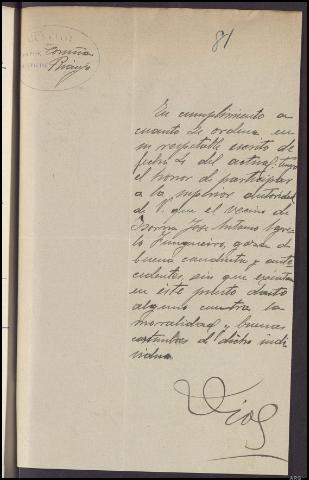 81
Coruña
En cumplimiento a
cuanto se ordena en
su respetable escrito de
fecha del actual tengo
el honor de participar
a la superior autoridad
de V. que el vecino de
José Antonio
goza de
buena conducta y ante
cedentes, sin que exista
en este puesto dato
alguno contra la
moralidad y buenas
costumbres de dicho indi-
viduo
Dios